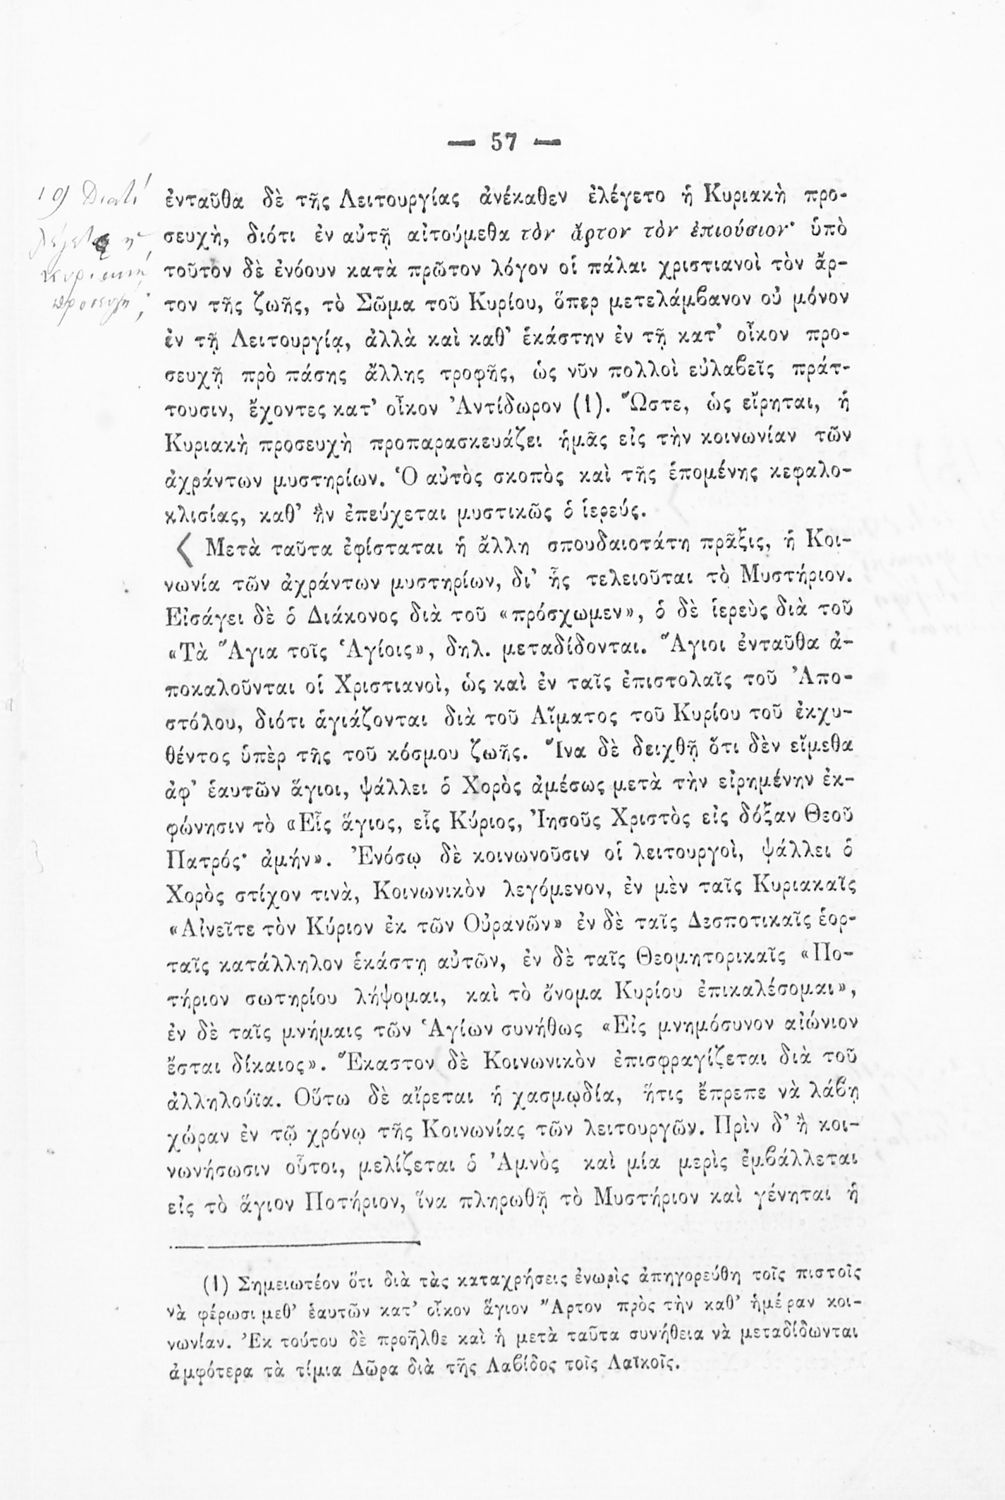 — 57 —
19) Διατί
λέγεται ἡ
κυριακή
προσευχή;
ἐνταῦθα δὲ τῆς Λειτουργίας ἀνέκαθεν ἐλέγετο ἡ Κυριακὴ προ-
σευχὴ, διότι ἐν αὐτῇ αἰτούμεθα τὸν ἄρτον τὸν ἐπιούσιον· ὑπὸ
τοῦτον δὲ ἐνόουν κατὰ πρῶτον λόγον οἱ πάλαι χριστιανοὶ τὸν ἄρ-
τον τῆς ζωῆς, τὸ Σῶμα τοῦ Κυρίου, ὅπερ μετελάμβανον οὐ μόνον
ἐν τῇ Λειτουργίᾳ, ἀλλὰ καὶ καθ’ ἑκάστην ἐν τῇ κατ’ οἶκον προ-
σευχῇ πρὸ πάσης ἄλλης τροφῆς, ὡς νῦν πολλοὶ εὐλαβεῖς πράτ-
τουσιν, ἔχοντες κατ’ οἶκον Ἀντίδωρον (1). Ὥστε, ὡς εἴρηται, ἡ
Κυριακὴ προσευχὴ προπαρασκευάζει ἡμᾶς εἰς τὴν κοινωνίαν τῶν
ἀχράντων μυστηρίων. Ὁ αὐτὸς σκοπὸς καὶ τῆς ἑπομένης κεφαλο-
κλισίας, καθ’ ἣν ἐπεύχεται μυστικῶς ὁ ἱερεύς.
Μετὰ ταῦτα ἐφίσταται ἡ ἄλλη σπουδαιοτάτη πρᾶξις, ἡ Κοι-
νωνία τῶν ἀχράντων μυστηρίων, δι’ ἧς τελειοῦται τὸ Μυστήριον.
Εἰσάγει δὲ ὁ Διάκονος διὰ τοῦ «πρόσχωμεν», ὁ δὲ ἱερεὺς διὰ τοῦ
«Τὰ Ἅγια τοῖς Ἁγίοις», δηλ. μεταδίδονται. Ἅγιοι ἐνταῦθα ἀ-
ποκαλοῦνται οἱ Χριστιανοὶ, ὡς καὶ ἐν ταῖς ἐπιστολαῖς τοῦ Ἀπο-
στόλου, διότι ἁγιάζονται διὰ τοῦ Αἵματος τοῦ Κυρίου τοῦ ἐκχυ-
θέντος ὑπὲρ τῆς τοῦ κόσμου ζωῆς. Ἵνα δὲ δειχθῇ ὅτι δὲν εἴμεθα
ἀφ’ ἑαυτῶν ἅγιοι, ψάλλει ὁ Χορὸς ἀμέσως μετὰ τὴν εἰρημένην ἐκ-
φώνησιν τὸ «Εἷς ἅγιος, εἷς Κύριος, Ἰησοῦς Χριστὸς εἰς δόξαν Θεοῦ
Πατρός· ἀμήν». Ἐνόσῳ δὲ κοινωνοῦσιν οἱ λειτουργοὶ, ψάλλει ὁ
Χορὸς στίχον τινὰ, Κοινωνικὸν λεγόμενον, ἐν μὲν ταῖς Κυριακαῖς
«Αἰνεῖτε τὸν Κύριον ἐκ τῶν Οὐρανῶν» ἐν δὲ ταῖς Δεσποτικαῖς ἑορ-
ταῖς κατάλληλον ἑκάστῃ αὐτῶν, ἐν δὲ ταῖς Θεομητορικαῖς «Πο-
τήριον σωτηρίου λήψομαι, καὶ τὸ ὄνομα Κυρίου ἐπικαλέσομαι»,
ἐν δὲ ταῖς μνήμαις τῶν Ἁγίων συνήθως «Εἰς μνημόσυνον αἰώνιον
ἔσται δίκαιος». Ἕκαστον δὲ Κοινωνικὸν ἐπισφραγίζεται διὰ τοῦ
ἀλληλούϊα. Οὕτω δὲ αἴρεται ἡ χασμῳδία, ἥτις ἔπρεπε νὰ λάβῃ
χώραν ἐν τῷ χρόνῳ τῆς Κοινωνίας τῶν λειτουργῶν. Πρὶν δ’ ἢ κοι-
νωνήσωσιν οὗτοι, μελίζεται ὁ Ἀμνὸς καὶ μία μερὶς ἐμβάλλεται
εἰς τὸ ἅγιον Ποτήριον, ἵνα πληρωθῇ τὸ Μυστήριον καὶ γένηται ἡ
(1) Σημειωτέον ὅτι διὰ τὰς καταχρήσεις ἐνωρὶς ἀπηγορεύθη τοῖς πιστοῖς
νὰ φέρωσι μεθ’ ἑαυτῶν κατ’ οἶκον ἅγιον Ἄρτον πρὸς τὴν καθ’ ἡμέραν κοι-
νωνίαν. Ἐκ τούτου δὲ προῆλθε καὶ ἡ μετὰ ταῦτα συνήθεια νὰ μεταδίδωνται
ἀμφότερα τὰ τίμια Δῶρα διὰ τῆς Λαβίδος τοῖς Λαϊκοῖς.